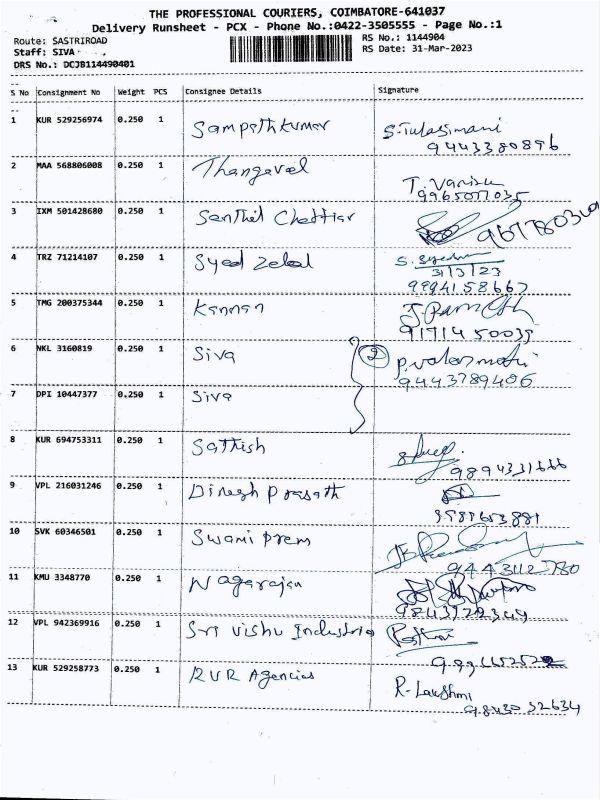 THE PROFESSIONAL COURIERS, COIMBATORE-641037
Delivery Runsheet - PCX - Phone No.:0422-3505555 - Page No.:1
Route: SASTRIROAD RS No.: 1144904
Staff: SIVA RS Date: 31-Mar-2023
DRS No.: DCJB114490401
S No Consignment No Weight PCS Consignee Details Signature
1 KUR 529256974 0.250 1 Sampathkumar S.Tulasimani
9443380896
2 MAA 568806008 0.250 1 Thangavel
3 IXM 501428680 0.250 1 Senthil Chettiar
4 TRZ 71214107 0.250 1 Syed Zelal
31/3/23
9994158667
5 TMG 200375344 0.250 1 Kannan
9171450039
6 NKL 3160819 0.250 1 Siva 2
9443789406
7 DPI 10447377 0.250 1 Siva
8 KUR 694753311 0.250 1 Sathish
9894331666
9 VPL 216031246 0.250 1 Dinesh Prasath
10 SVK 60346501 0.250 1 Swami Prem
11 KMU 3348770 0.250 1 Nagarajan
12 VPL 942369916 0.250 1 Sri Vishu Industries
13 KUR 529258773 0.250 1 RVR Agencies R. Lakshmi
9843032634